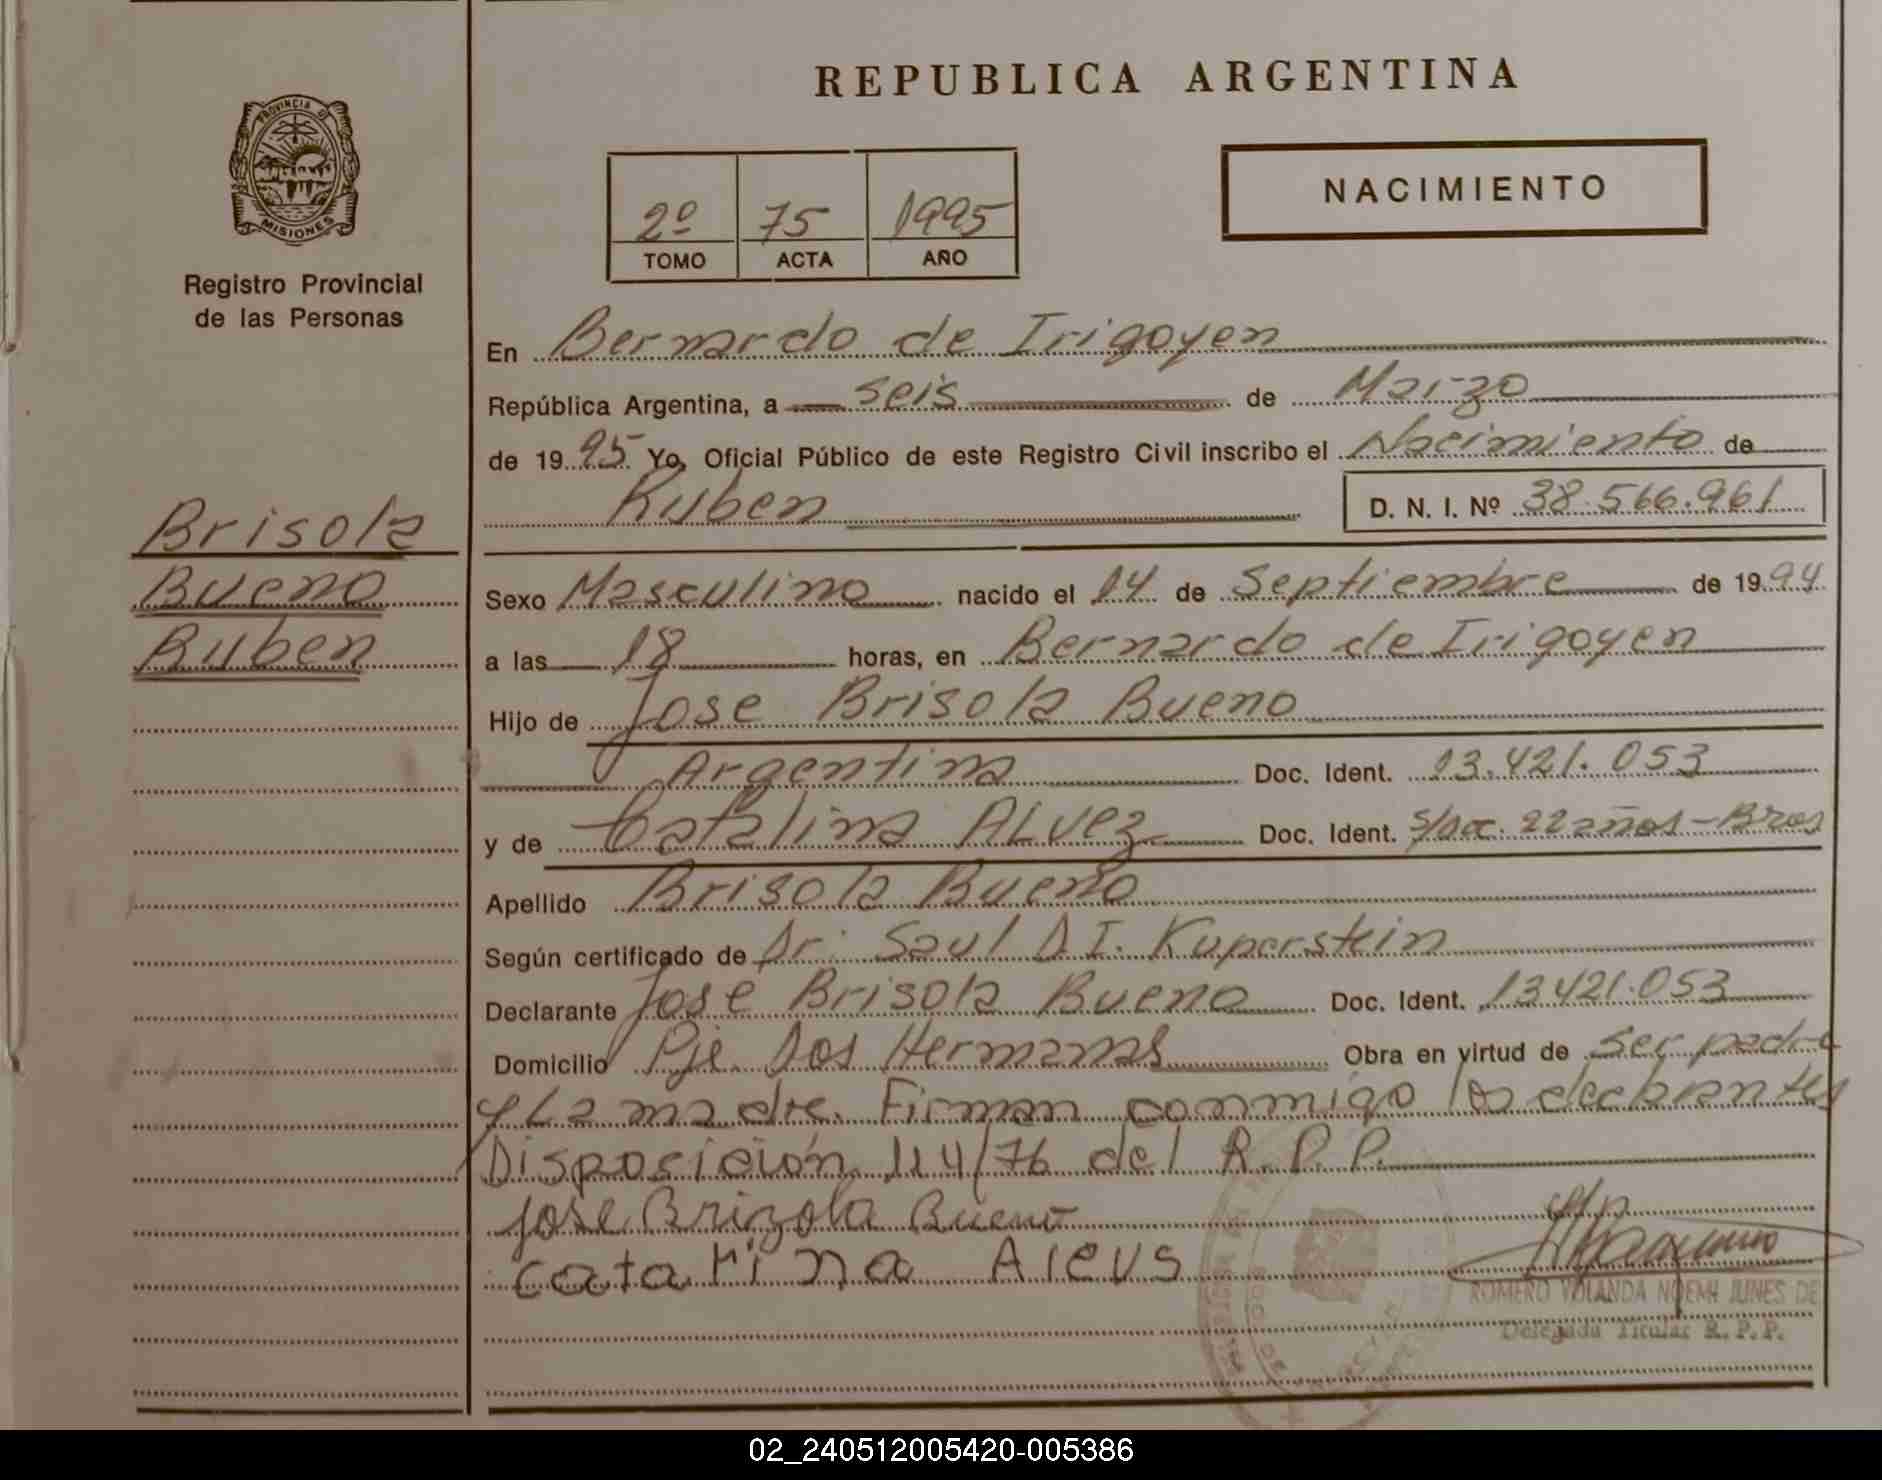 REPUBLICA ARGENTINA
PROVINCIA DE
MISIONES
Registro Provincial
de las Personas
2º 75 1995
TOMO ACTA AÑO
NACIMIENTO
Brisola
Bueno
Ruben
En Bernardo de Irigoyen
República Argentina, a seis de Marzo
de 1995 Yo, Oficial Público de este Registro Civil inscribo el Nacimiento de
Ruben D. N. I. Nº 38.566.961
Sexo Masculino nacido el 14 de Septiembre de 1994
a las 18 horas, en Bernardo de Irigoyen
Hijo de Jose Brisola Bueno
Argentina Doc. Ident. 13.421.053
y de Catalina Alvez Doc. Ident. s/doc. 22 años - Bras
Apellido Brisola Bueno
Según certificado de Dr. Saul D.I. Kuperstein
Declarante Jose Brisola Bueno Doc. Ident. 13.421.053
Domicilio Pje. Dos Hermanas Obra en virtud de ser padre
y La madre. Firman conmigo los declarantes
Disposición 114/76 del R.P.P.
Jose Brizola Bueno
catarina Aleus
ROMERO YOLANDA NOEMI JUNES DE
Delegada Titular R.P.P.
02_240512005420-005386